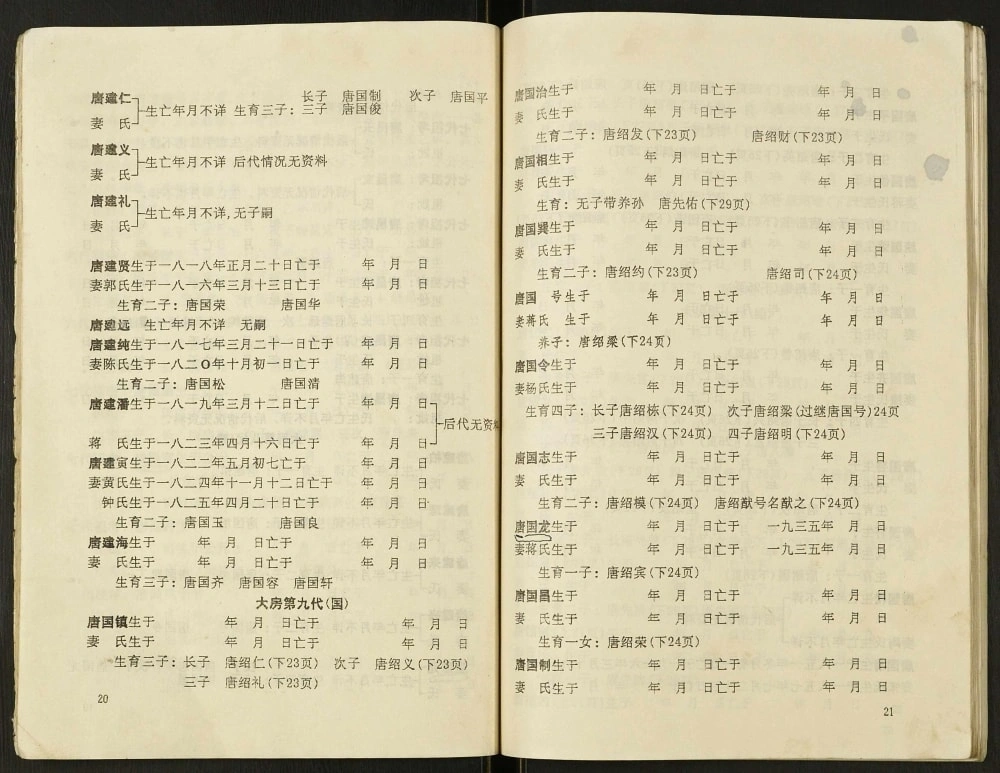 唐建仁 生亡年月不详 生育三子：长子 唐国制 次子 唐国平
妻 氏 三子 唐国俊
唐建义 生亡年月不详 后代情况无资料
妻 氏
唐建礼 生亡年月不详，无子嗣
妻 氏
唐建贤生于一八一八年正月二十日亡于 年 月 日
妻郭氏生于一八一六年三月十三日亡于 年 月 日
生育二子：唐国荣 唐国华
唐建远 生亡年月不详 无嗣
唐建纯生于一八一七年三月二十一日亡于 年 月 日
妻陈氏生于一八二〇年十月初一日亡于 年 月 日
生育二子：唐国松 唐国清
唐建潘生于一八一九年三月十二日亡于 年 月 日 后代无资料
蒋 氏生于一八二三年四月十六日亡于 年 月 日
唐建寅生于一八二二年五月初七亡于 年 月 日
妻黄氏生于一八二四年十一月十二日亡于 年 月 日
钟氏生于一八二五年四月二十日亡于 年 月 日
生育二子：唐国玉 唐国良
唐建海生于 年 月 日亡于 年 月 日
妻 氏生于 年 月 日亡于 年 月 日
生育三子：唐国齐 唐国容 唐国轩
大房第九代(国)
唐国镇生于 年 月 日亡于 年 月 日
妻 氏生于 年 月 日亡于 年 月 日
生育三子：长子 唐绍仁(下23页) 次子 唐绍义(下23页)
三子 唐绍礼(下23页)
20
唐国治生于 年 月 日亡于 年 月 日
妻 氏生于 年 月 日亡于 年 月 日
生育二子：唐绍发(下23页) 唐绍财(下23页)
唐国相生于 年 月 日亡于 年 月 日
妻 氏生于 年 月 日亡于 年 月 日
生育：无子带养孙 唐先佑(下29页)
唐国巽生于 年 月 日亡于 年 月 日
妻 氏生于 年 月 日亡于 年 月 日
生育二子：唐绍约(下23页) 唐绍司(下24页)
唐国 号生于 年 月 日亡于 年 月 日
妻蒋氏 生于 年 月 日亡于 年 月 日
养子：唐绍梁(下24页)
唐国令生于 年 月 日亡于 年 月 日
妻杨氏生于 年 月 日亡于 年 月 日
生育四子：长子唐绍栋(下24页) 次子唐绍梁(过继唐国号)24页
三子唐绍汉(下24页) 四子唐绍明(下24页)
唐国志生于 年 月 日亡于 年 月 日
妻 氏生于 年 月 日亡于 年 月 日
生育二子：唐绍模(下24页) 唐绍猷号名猷之(下24页)
唐国龙生于 年 月 日亡于 一九三五年 月 日
妻蒋氏生于 年 月 日亡于 一九三五年 月 日
生育一子：唐绍宾(下24页)
唐国昌生于 年 月 日亡于 年 月 日
妻 氏生于 年 月 日亡于 年 月 日
生育一女：唐绍荣(下24页)
唐国制生于 年 月 日亡于 年 月 日
妻 氏生于 年 月 日亡于 年 月 日
21